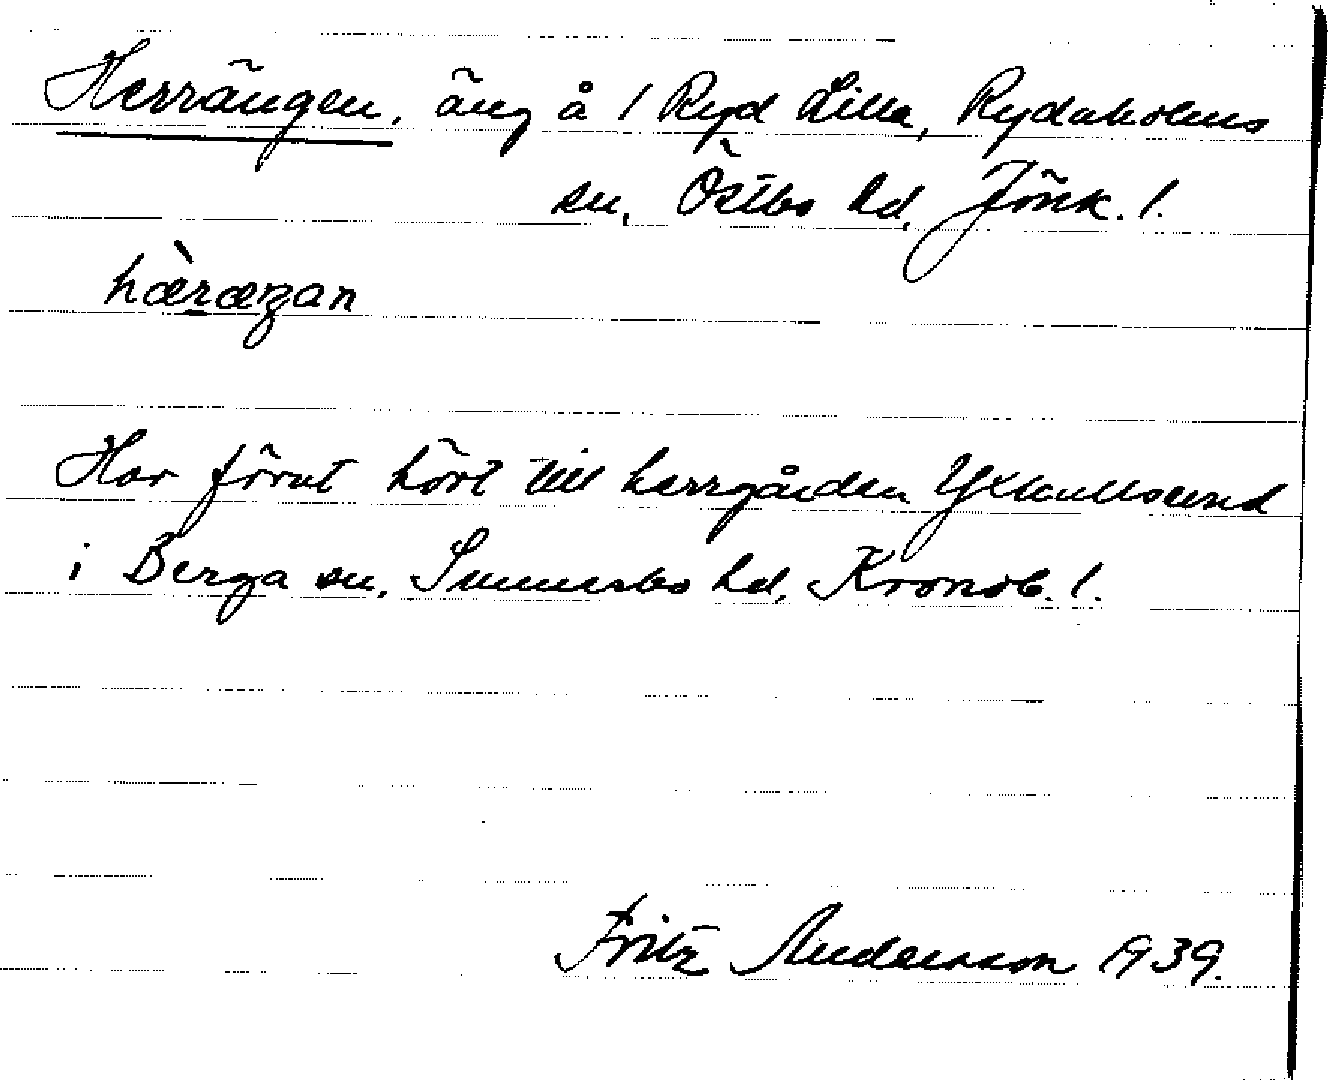 Herrängen, äng å 1 Ryd Lilla, Rydaholms
sn, Östbo hd, Jönk. l.
hæ̀ræŋan
Har förut hört till herrgården Yxkullsund
i Berga sn, Sunnerbo hd, Kronob. l.
Fritz Andersson 1939.